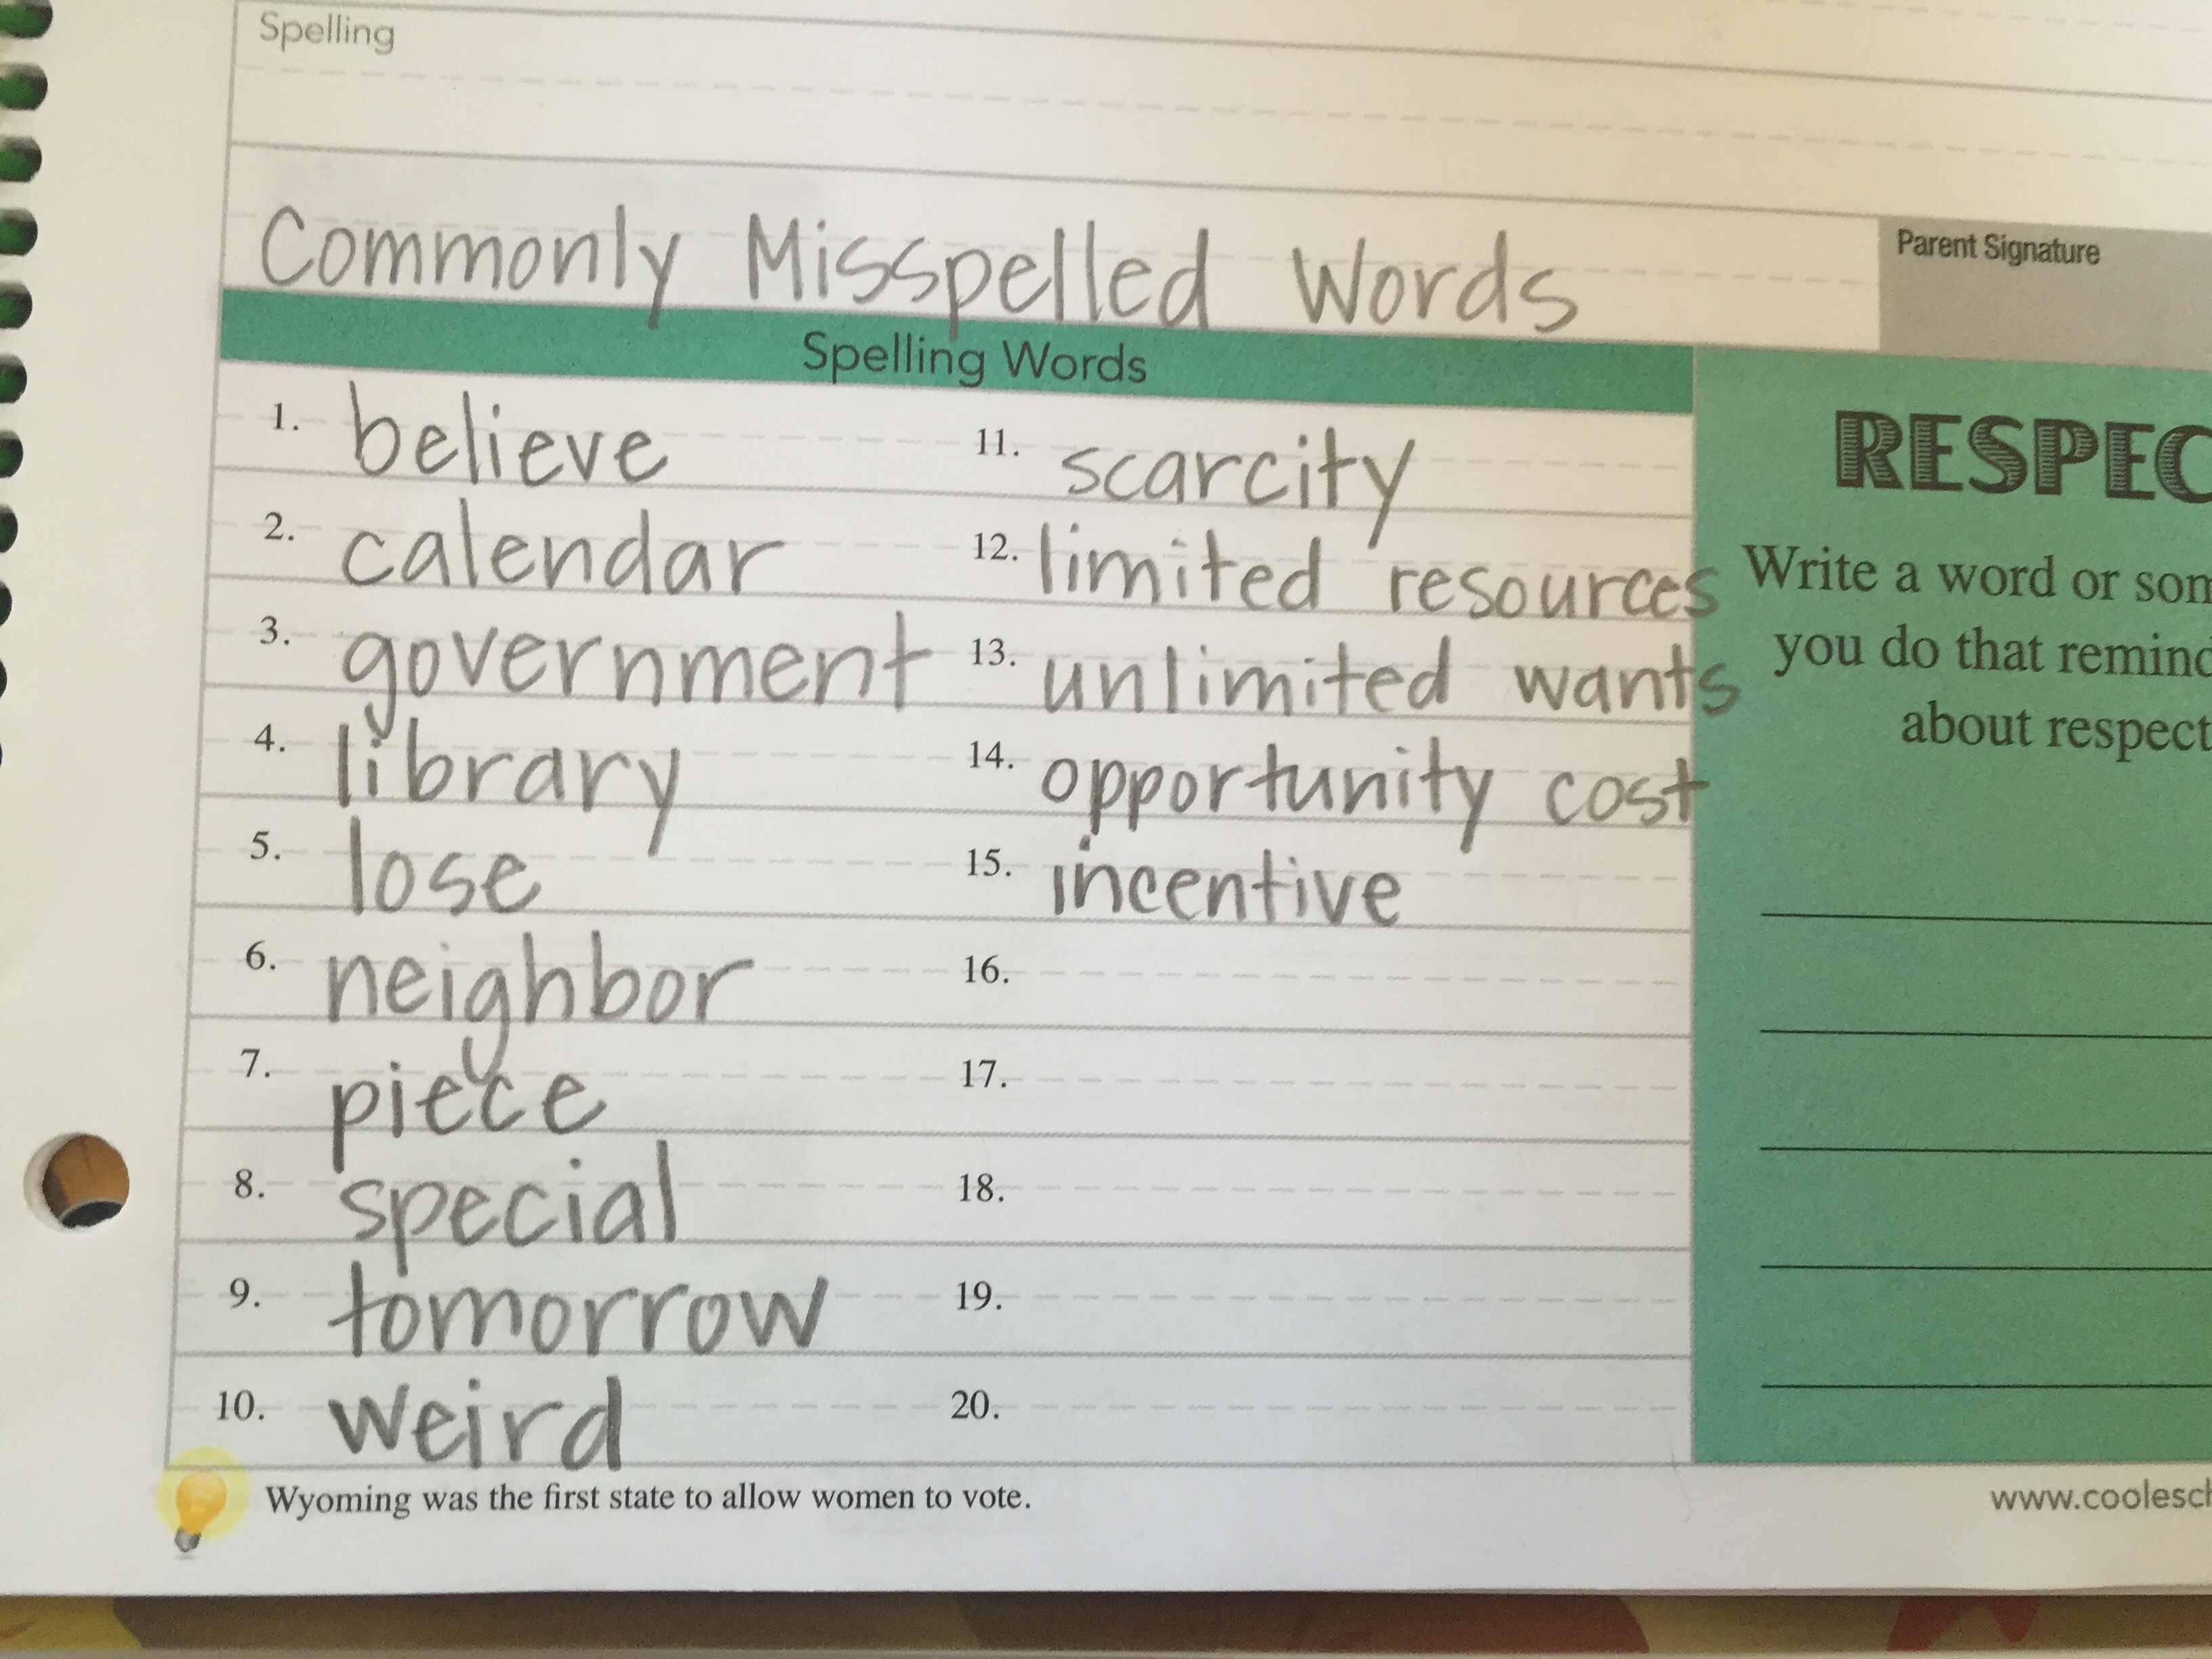 Spelling
Commonly Misspelled Words
Parent Signature
Spelling Words
1. believe
2. calendar
3. government
4. library
5. lose
6. neighbor
7. piece
8. special
9. tomorrow
10. weird
11. scarcity
12. limited resources
13. unlimited wants
14. opportunity cost
15. incentive
16.
17.
18.
19.
20.
RESPEC
Write a word or som
you do that remind
about respect
Wyoming was the first state to allow women to vote.
www.coolesch